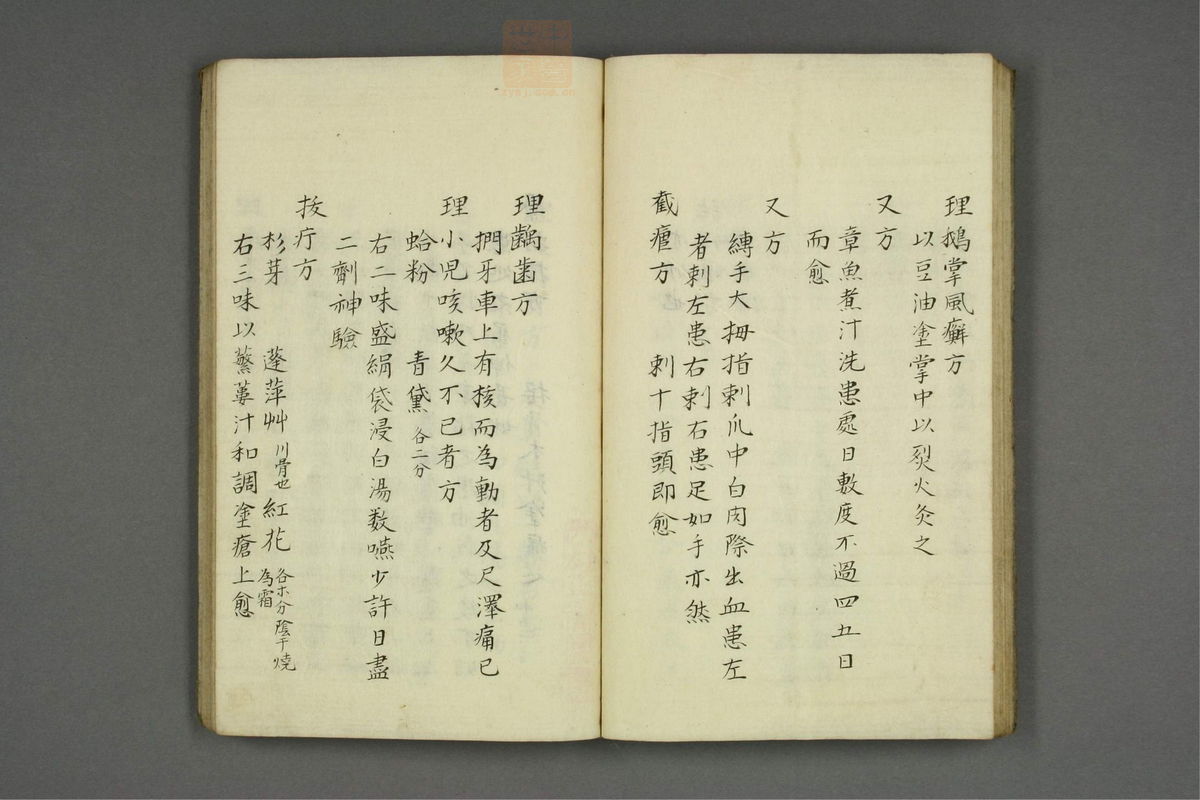 理鵝掌風癬方
以豆油塗掌中以烈火灸之
又方
章魚煮汁洗患處日數度不過四五日
而愈
又方
縛手大拇指刺爪中白肉際出血患左
者刺左患右刺右患足如手亦然
截瘧方 刺十指頭即愈
理齲齒方
捫牙車上有核而為動者及尺澤痛已
理小児咳嗽久不已者方
蛤粉 青黛 各二分
右二味盛絹袋浸白湯数嚥少許日盡
二劑神驗
拔疔方
杉芽 蓬萍艸 川骨也 紅花 各木分陰干燒為霜
右三味以蘩蔞汁和調塗瘡上愈